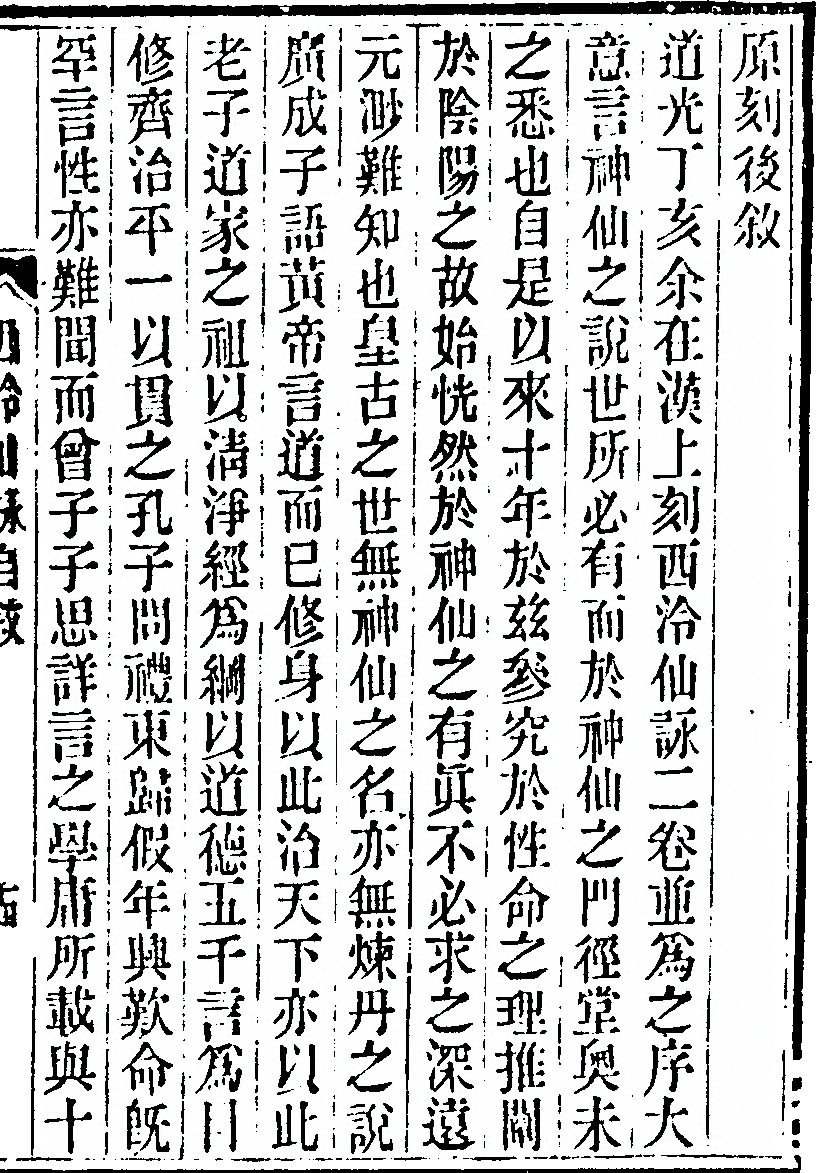 原刻後敘
道光丁亥余在漢上刻西泠仙詠二卷並爲之序大
意言神仙之說世所必有而於神仙之門徑堂奧未
之悉也自是以來十年於茲參究於性命之理推闡
於陰陽之故始恍然於神仙之有眞不必求之深遠
元渺難知也皇古之世無神仙之名亦無煉丹之說
廣成子語黃帝言道而已修身以此治天下亦以此
老子道家之祖以清淨經爲綱以道德五千言爲目
修齊治平一以貫之孔子問禮東歸假年興歎命旣
罕言性亦難聞而曾子子思詳言之學庸所載與十
西泠仙詠自敘